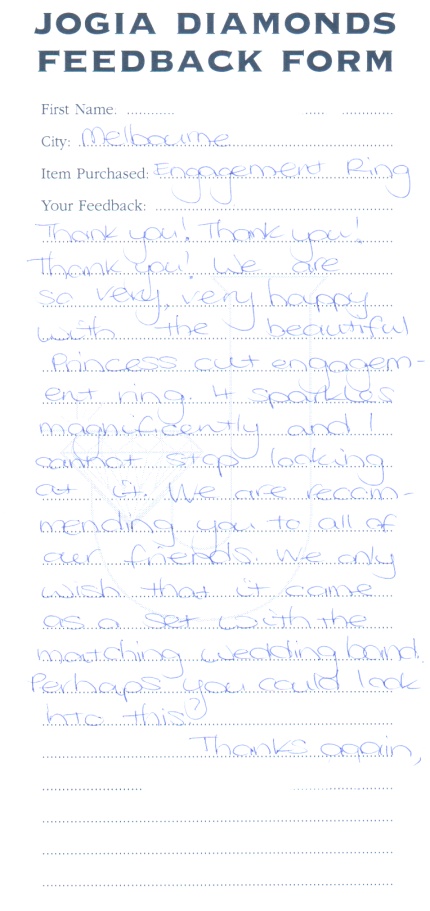 JOGIA DIAMONDS
FEEDBACK FORM
First Name:
City: Melbourne
Item Purchased: Engagement Ring
Your Feedback:
Thank you! Thank you!
Thank you! We are
so very, very happy
with the beautiful
Princess cut engagem-
ent ring. It sparkles
magnificently and I
cannot stop looking
at it. We are recom-
mending you to all of
our friends. We only
wish that it came
as a set with the
matching wedding band.
Perhaps you could look
into this?
Thanks again,